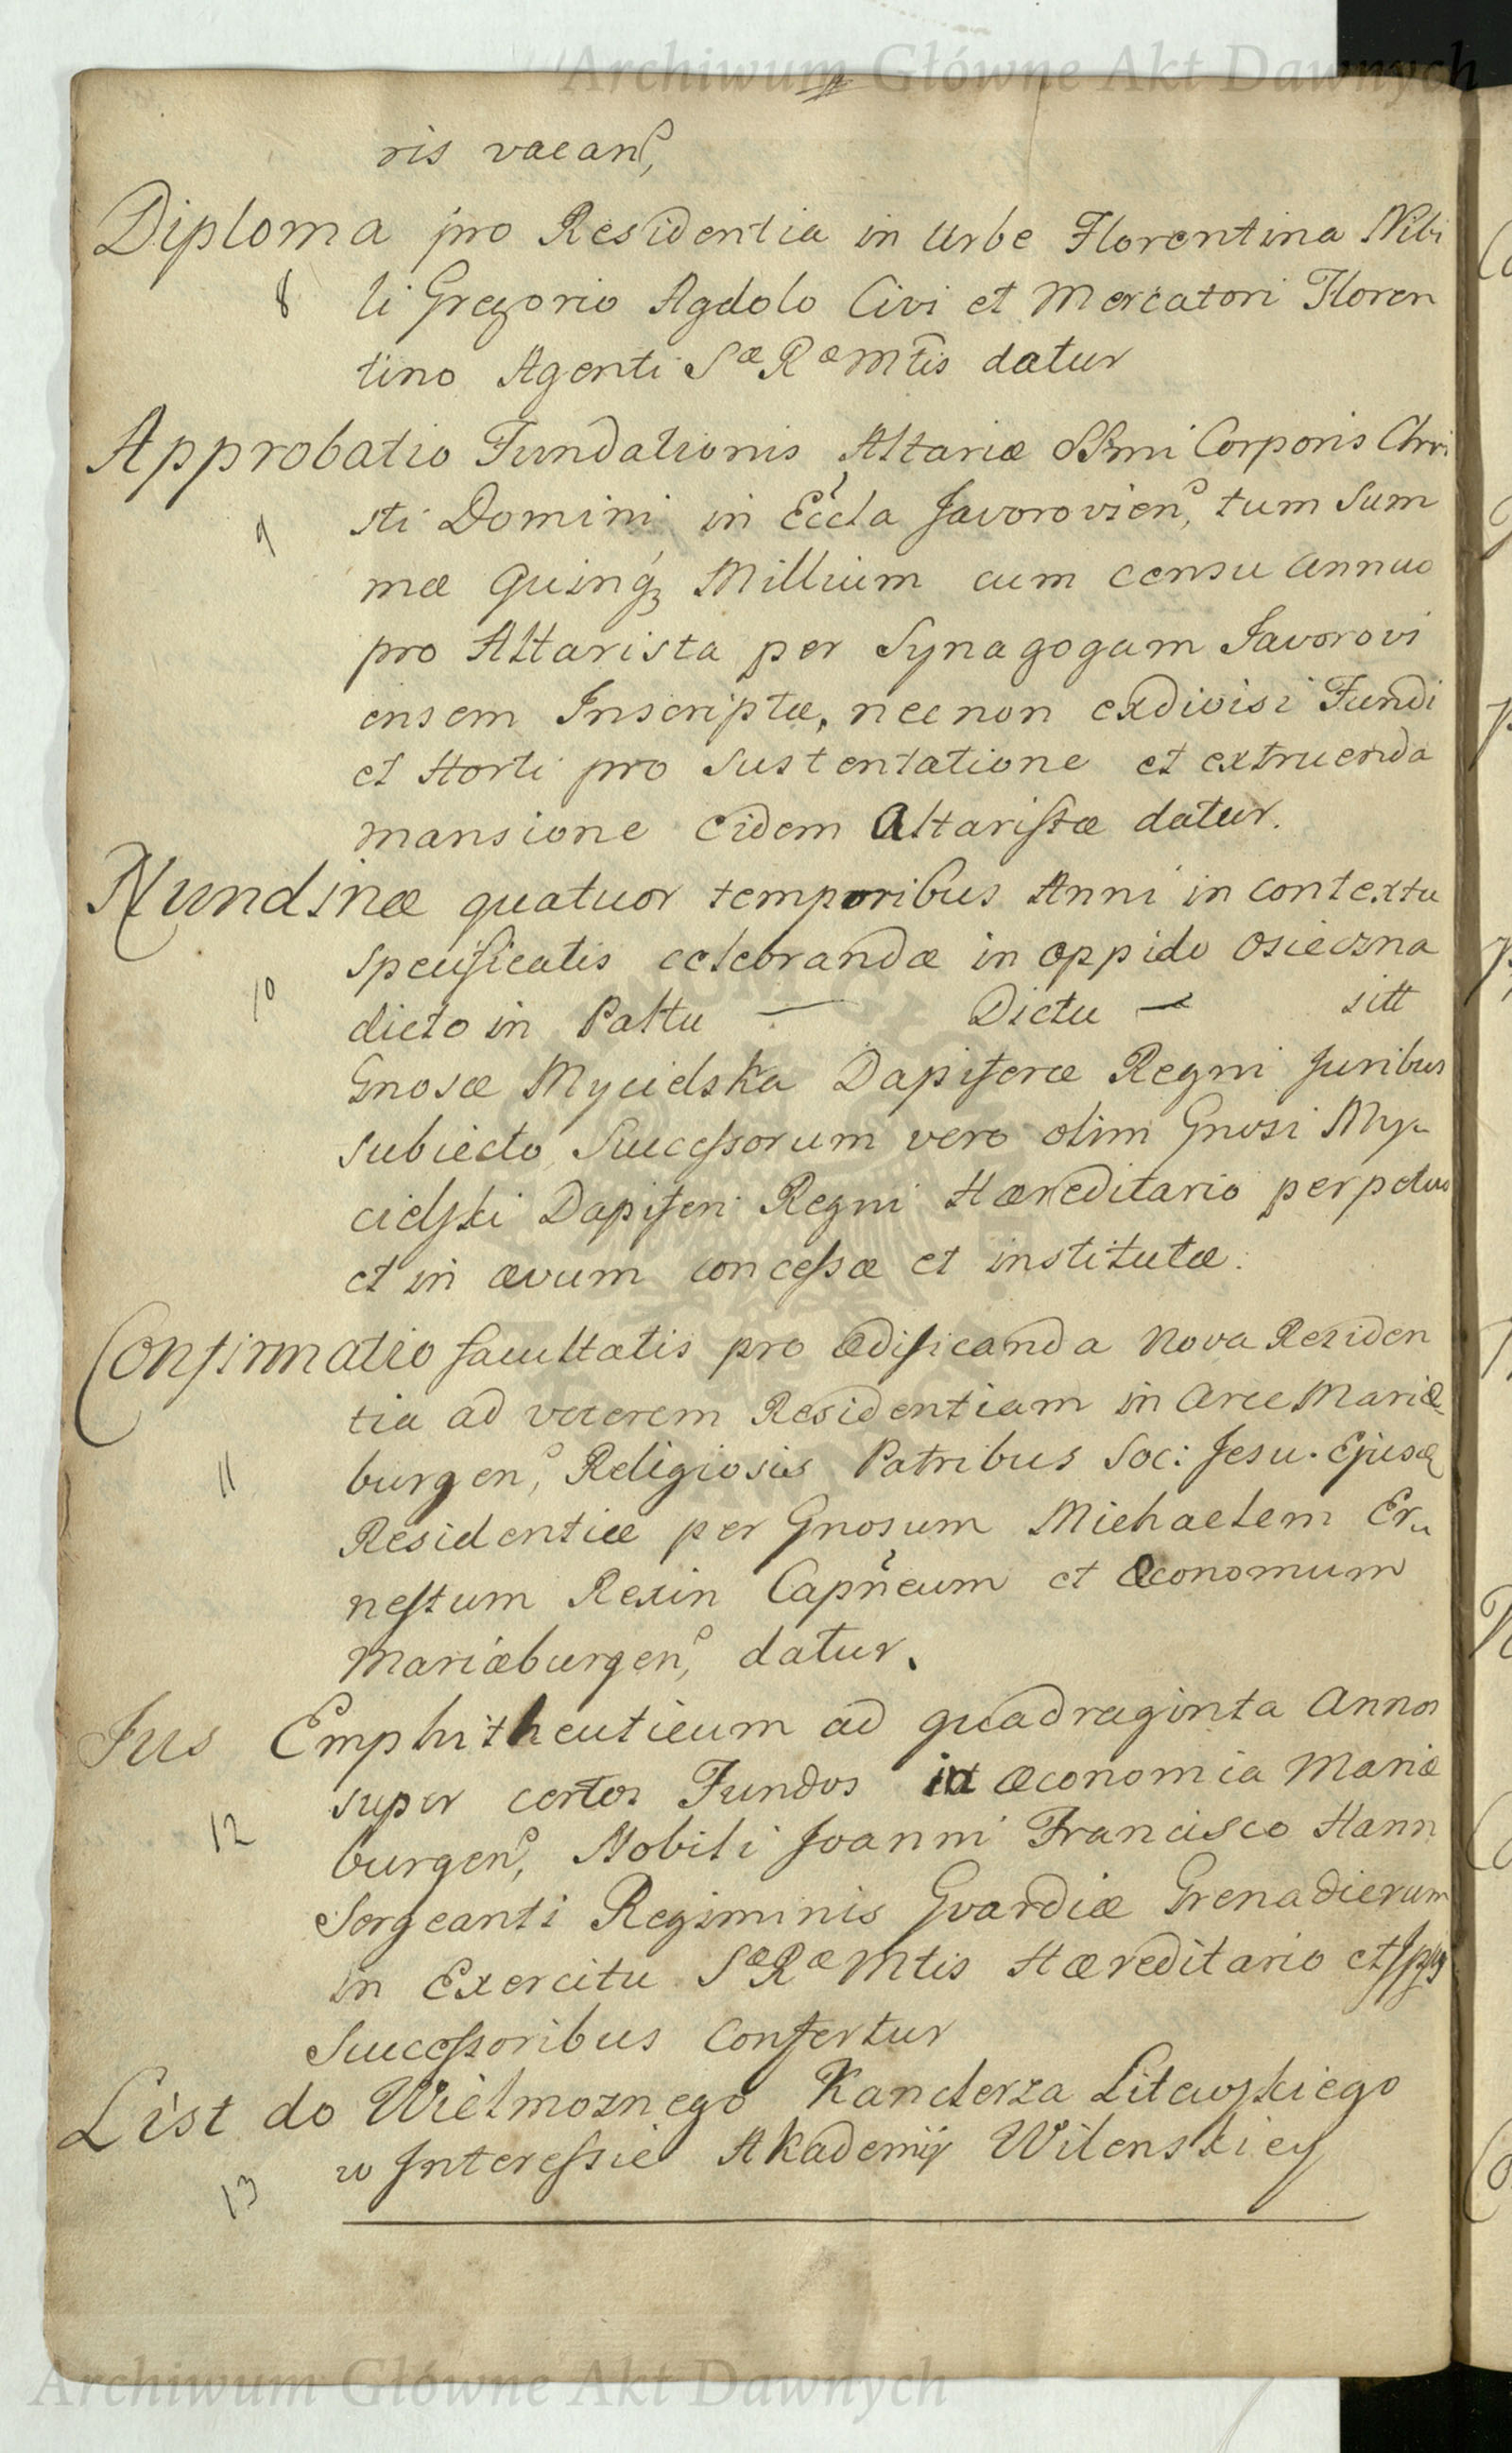 Archiwum Główne Akt Dawnych
ris vacan,
Diploma pro Residentia in Urbe Florentina Nobi
8 li Gregorio Agdolo Civi et Mercatori Floren
tino Agenti Sæ Ræ Mtis datur
Approbatio Fundationis Altariæ SSmi Corporis Chri
9 sti Domini in Eccla Javorovien, tum Sum
mæ Quinq3 Millium cum censu annuo
pro Altarista per Synagogam Javorovi
ensem Inscriptæ, necnon exdivisi Fundi
et Horti pro sustentatione et extruenda
mansione eidem Altaristæ datur.
Nundinæ quatuor temporibus Anni in contextu
specificatis celebrandæ in oppido Osieczna
10 dicto in Pattu — Dictu — sitt
Gnosæ Mycielska Dapiferæ Regni Juribus
subiecto Successorum vero olim Gnosi My-
cielski Dapiferi Regni Hæreditario perpetuo
et in ævum concessæ et institutæ.
Confirmatio facultatis pro ædificanda Nova Residen
tia ad veterem Residentiam in Arce Mariæ-
11 burgen, Religiosis Patribus Soc: Jesu. Ejusd
Residentiæ per Gnosum Michaelem Er-
nestum Rexin Capneum et Œconomum
Mariæburgen, datur.
Jus Emphitheuticum ad quadraginta Annos
super certos Fundos in Œconomia Mariæ
12 burgen, Nobili Joanni Francisco Hann
Sergeanti Regiminis Gvardiæ Grenadierum
in Exercitu Sæ Ræ Mtis Hæreditario et
Successoribus Confertur
List do Wielmoznego Kanclerza Litewskiego
13 w Interessie Akademij Wilenskiey
Archiwum Główne Akt Dawnych